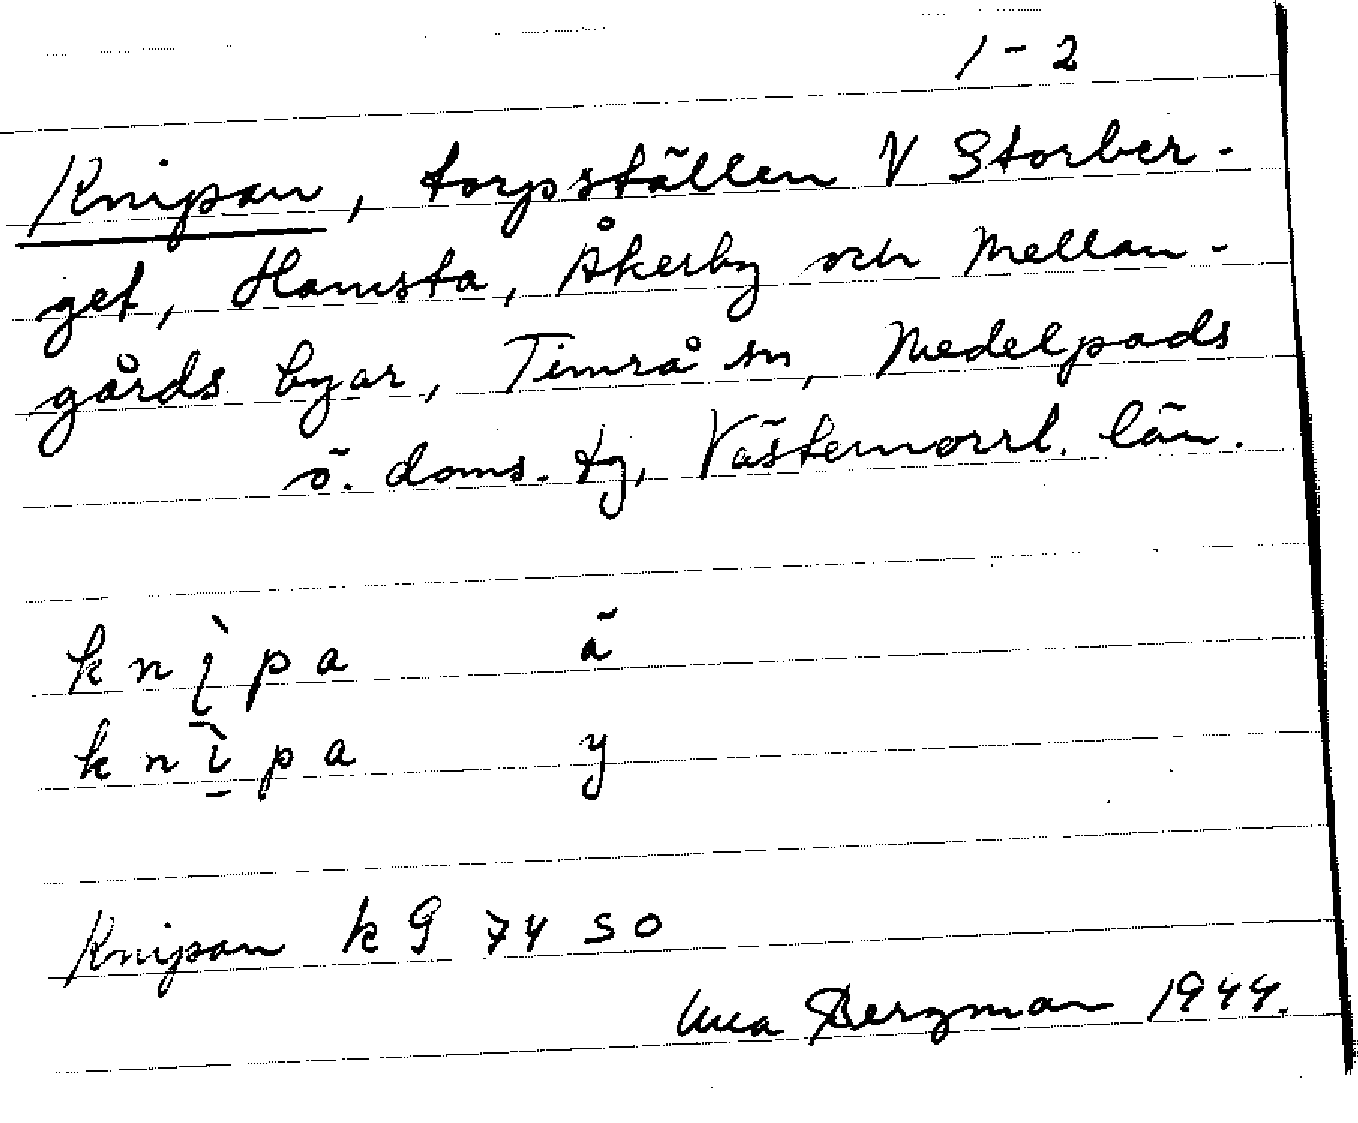 1-2
Knipan, torpställen V Storber-
get, Hamsta, Åkerby och Mellan-
gårds byar, Timrå sn, Medelpads
ö. doms. tg, Västernorrl. län.
knì̱pa ä
knì̱pa y
Knipan k G 74 S O
Bergman 1944.